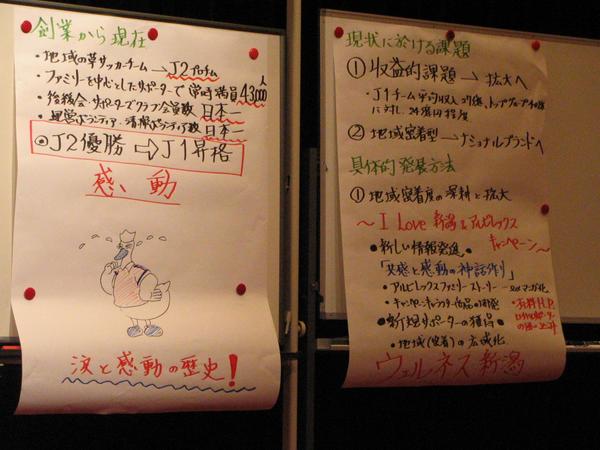 創業から現在
・地域の草サッカーチーム→J2プロチーム
・ファミリーを中心としたサポーターで常時満員43,000人
・後援会・サポーターズクラブ会員数 日本一
・運営ボランティア・清掃ボランティア数 日本一
◎J2優勝⇨J1昇格
感動
汗と感動の歴史!
現状に於ける課題
①収益的課題→拡大へ
・J1チーム平均収入
に対し、24億円程度
②地域密着型→ナショナルブランドへ
具体的発展方法
①地域密着度の深耕と拡大
〜I Love 新潟&アルビレックス
キャンペーン〜
●新しい情報発進
「共感と感動の神話作り」
・アルビレックスファミリーストーリー
・キャンペーンキャラクター作品の開発
・有料H.P.
●新規サポーターの獲得
・地域(密着)の広域化
ウェルネス新潟